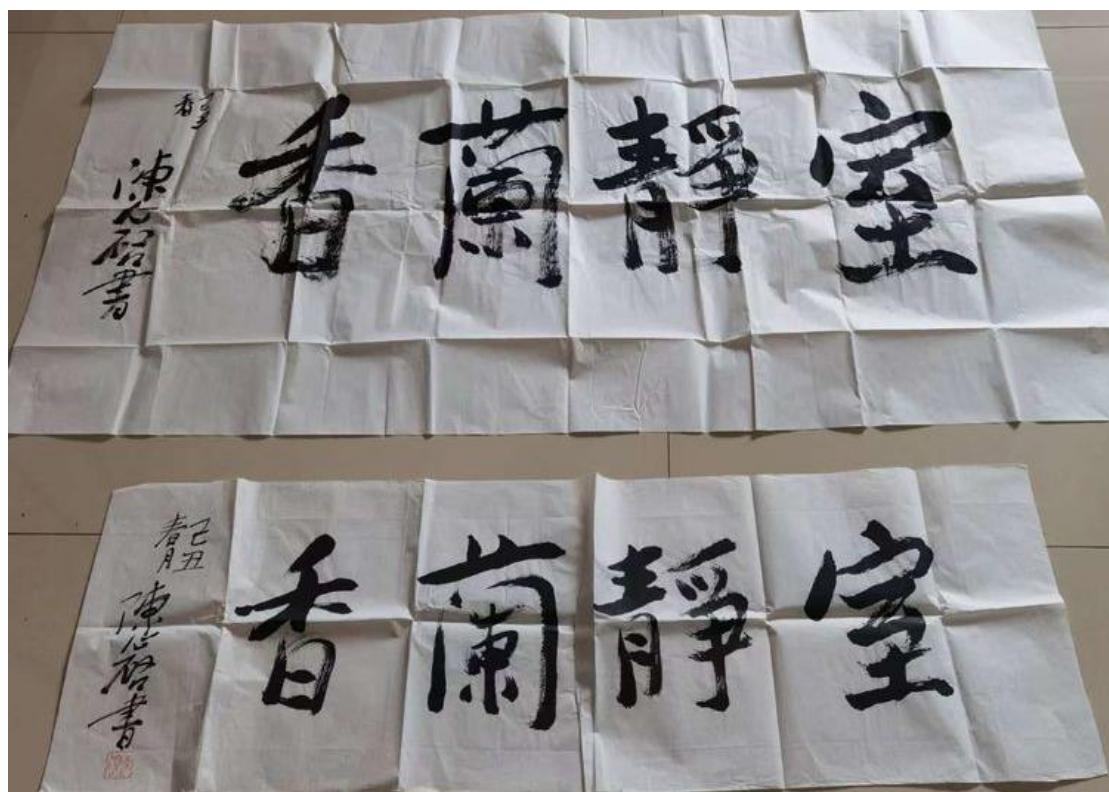 室靜蘭香
春
陳啓書
室靜蘭香
己丑
春月
陳啓書